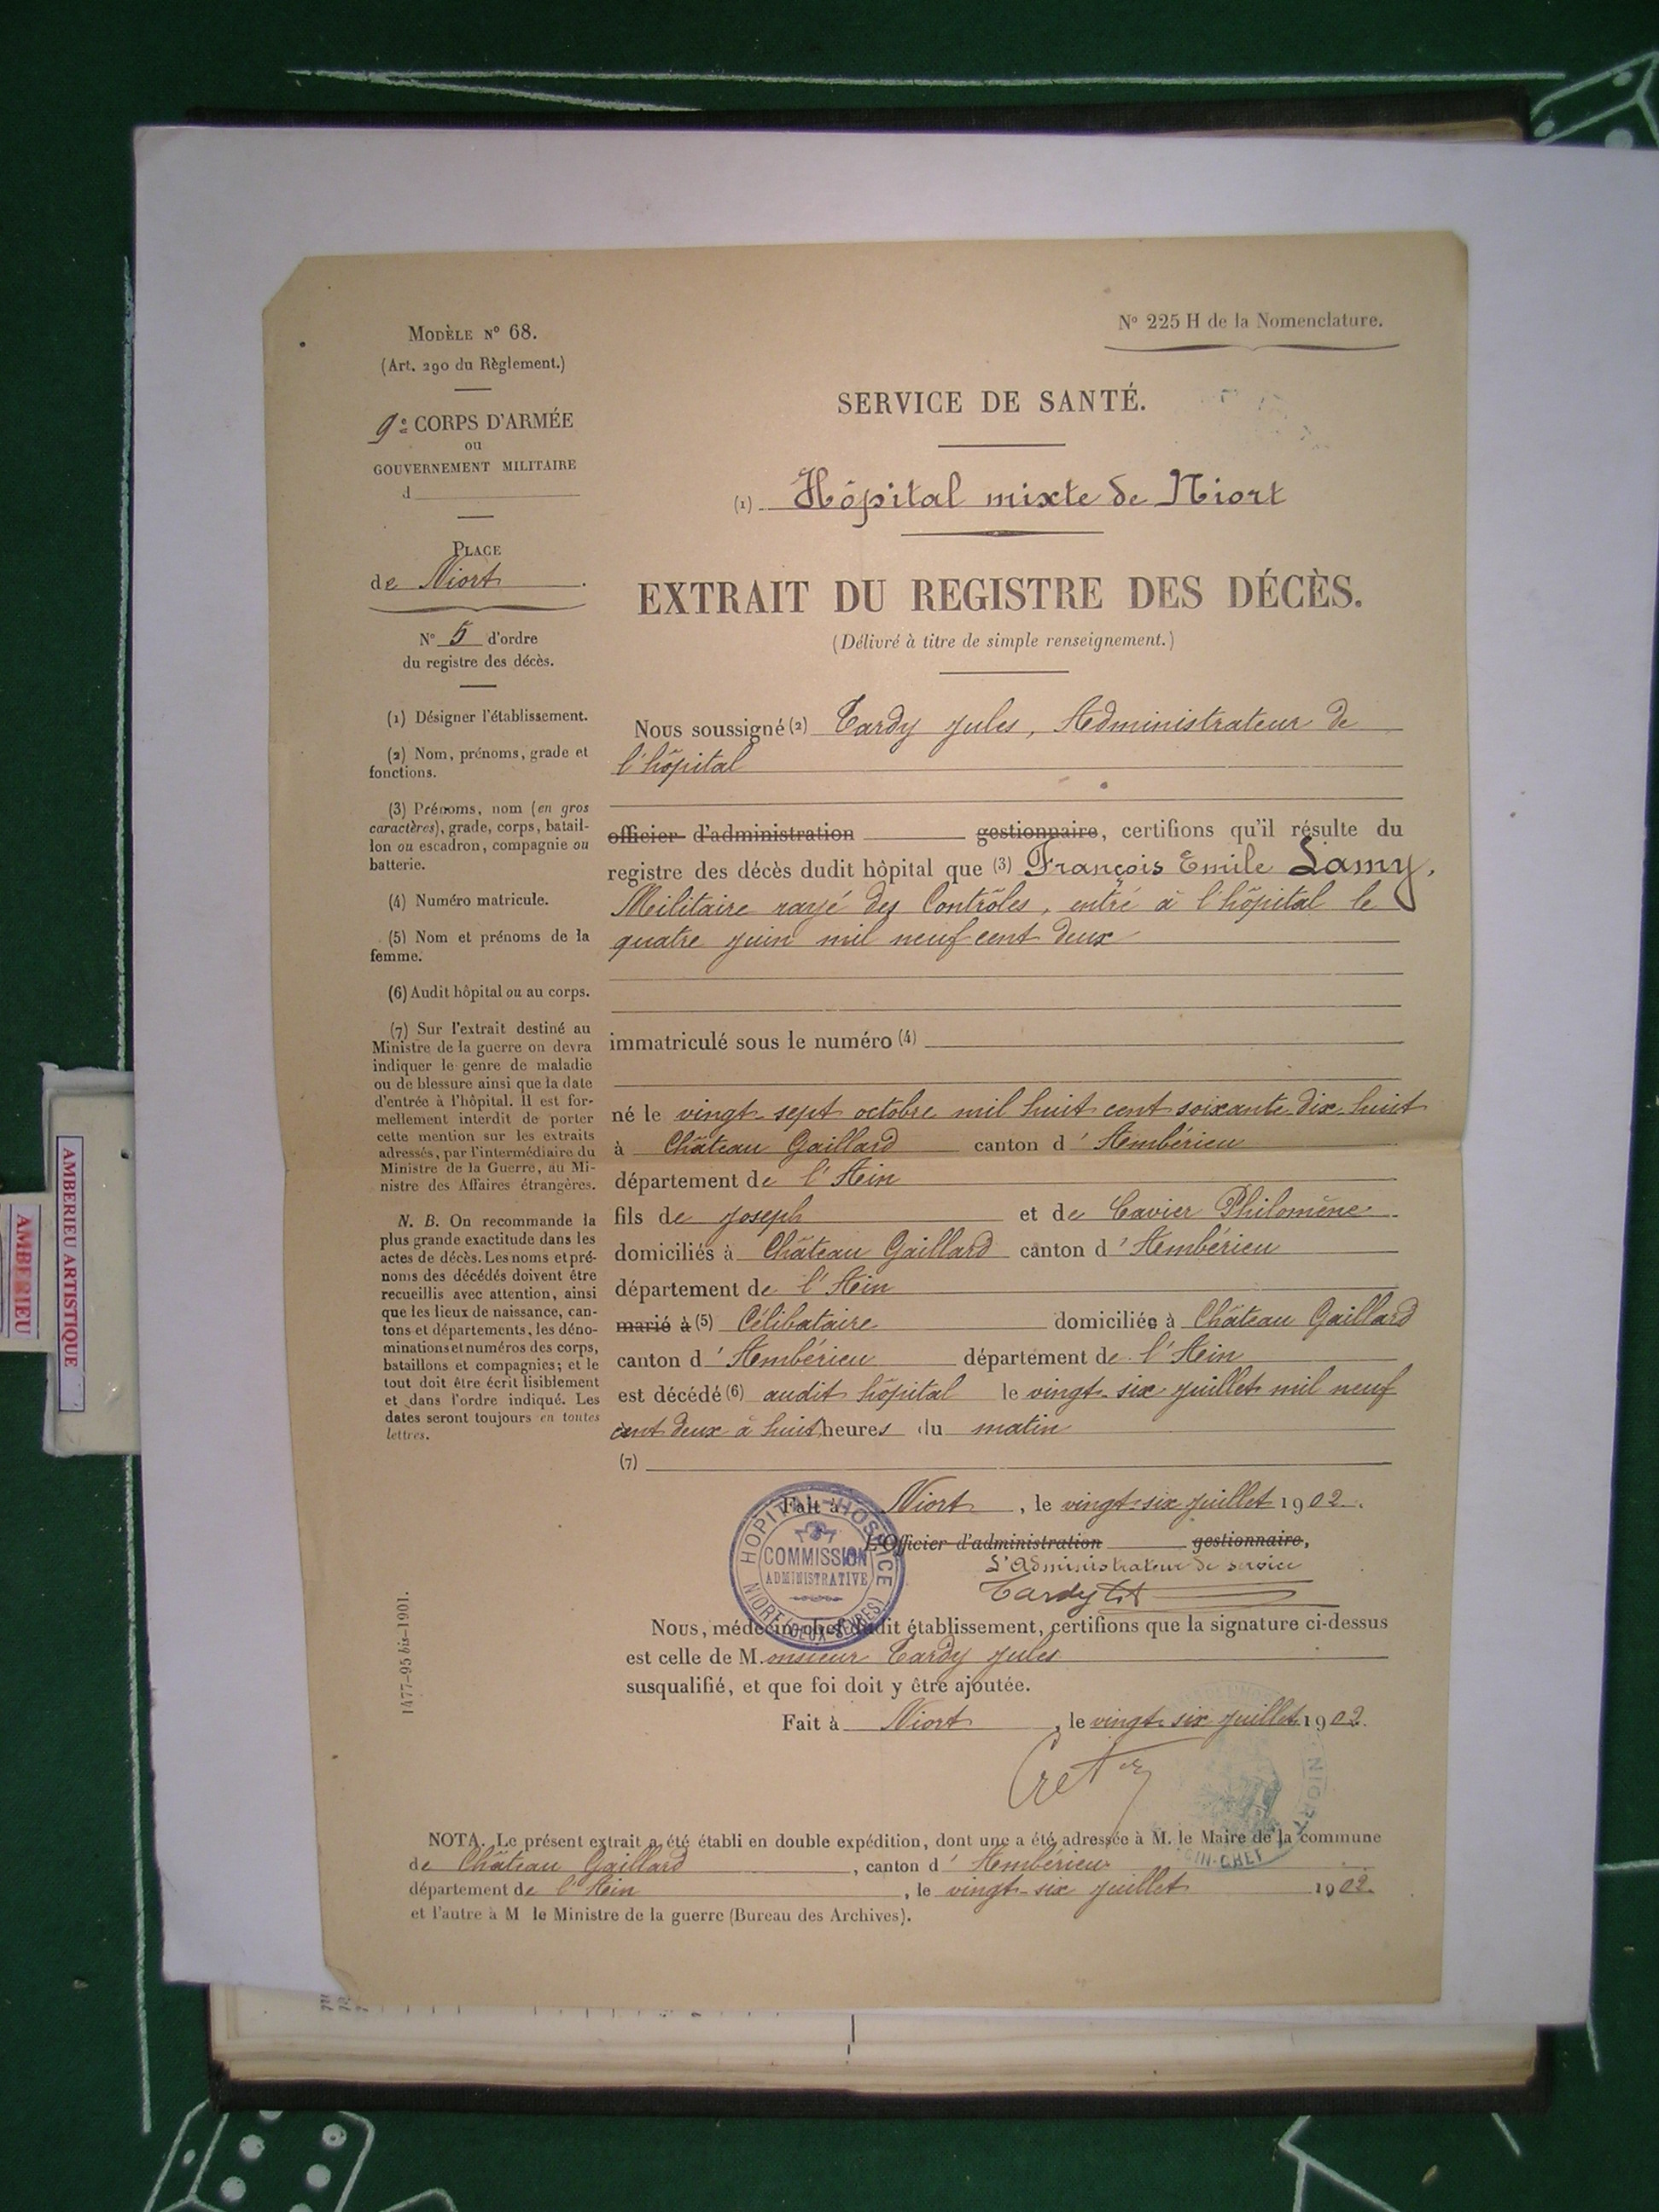 MODÈLE N° 68.
(Art. 290 du Règlement.)
9e CORPS D'ARMÉE
ou
GOUVERNEMENT MILITAIRE
d
PLACE
de Niort.
N° 5 d'ordre
du registre des décès.
(1) Désigner l'établissement.
(2) Nom, prénoms, grade et
fonctions.
(3) Prénoms, nom (en gros
caractères), grade, corps, batail-
lon ou escadron, compagnie ou
batterie.
(4) Numéro matricule.
(5) Nom et prénoms de la
femme.
(6) Audit hôpital ou au corps.
(7) Sur l'extrait destiné au
Ministre de la guerre on devra
indiquer le genre de maladie
ou de blessure ainsi que la date
d'entrée à l'hôpital. Il est for-
mellement interdit de porter
cette mention sur les extraits
adressés, par l'intermédiaire du
Ministre de la Guerre, au Mi-
nistre des Affaires étrangères.
N. B. On recommande la
plus grande exactitude dans les
actes de décès. Les noms et pré-
noms des décédés doivent être
recueillis avec attention, ainsi
que les lieux de naissance, can-
tons et départements, les déno-
minations et numéros des corps,
bataillons et compagnies; et le
tout doit être écrit lisiblement
et dans l'ordre indiqué. Les
dates seront toujours en toutes
lettres.
1477-95 bis-1901.
N° 225 H de la Nomenclature.
SERVICE DE SANTÉ.
(1) Hôpital mixte de Niort
EXTRAIT DU REGISTRE DES DÉCÈS.
(Délivré à titre de simple renseignement.)
Nous soussigné (2) Tardy Jules, Administrateur de
l'hôpital
officier d'administration gestionnaire, certifions qu'il résulte du
registre des décès dudit hôpital que (3) François Emile Lamy,
Militaire rayé des Contrôles, entré à l'hôpital le
quatre juin mil neuf cent deux
immatriculé sous le numéro (4)
né le vingt-sept octobre mil huit cent soixante-dix-huit
à Château Gaillard canton d'Ambérieu
département de l'Ain
fils de Joseph et de Cavier Philomène
domiciliés à Château Gaillard canton d'Ambérieu
département de l'Ain
marié à (5) Célibataire domiciliée à Château Gaillard
canton d'Ambérieu département de l'Ain
est décédé (6) audit hôpital le vingt-six juillet mil neuf
cent deux à huit heures du matin
(7)
Fait à Niort, le vingt-six juillet 1902.
L'Officier d'administration gestionnaire,
L'Administrateur de service
Tardy
HÔPITAL-HOSPICE
COMMISSION
ADMINISTRATIVE
NIORT (DEUX-SÈVRES)
Nous, médecin chef dudit établissement, certifions que la signature ci-dessus
est celle de Monsieur Tardy Jules
susqualifié, et que foi doit y être ajoutée.
Fait à Niort, le vingt-six juillet 1902.
NOTA. Le présent extrait a été établi en double expédition, dont une a été adressée à M. le Maire de la commune
de Château Gaillard, canton d'Ambérieu
département de l'Ain, le vingt-six juillet 1902.
et l'autre à M le Ministre de la guerre (Bureau des Archives).
AMBERIEU ARTISTIQUE
AMBERIEU